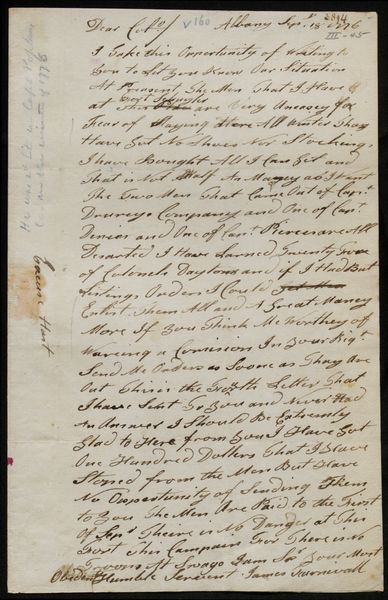 Dear Col° Albany Sep.r 18 1776
I Take this Opportunity of Writing to
You to Let You Know Our Situation
At Present The Men That I Have
at Fort Schuyler are Very Uneasey for
Fear of Staying Here All Winter Thay
Have Got No Shoes Nor Stockings
I have Bought All I Can Get and
That is Not Half As Maney as I Want
The Two Men That Came Out of Capt
Company and One of Capt
and One of Capt are All
Desarted I Have Larned Twenty
of Colonels Daytons and if I Had But
Listing Orders I Could
Enlist Them All and A Great Maney
More If You Think Me Worthey of
Wareing a Commision In Your Reg.t
Send Me Orders as Soone as Thay Are
Out This is the Letter That
I have Sent To You and Never Had
An Answer I Should Be Extremly
Glad to Here from You I Have Got
One Hundred Dollers That I Have
Stoped from the Men But Have
No Oppertunity of Sending Them
to You The Men Are Paid to the First
Of Sep.t Theire is No Danger at This
Post This Campain For There is No
Troops At Swago I am Sir Your Most
Obedient Humble Servent James
2814
III-45
V160